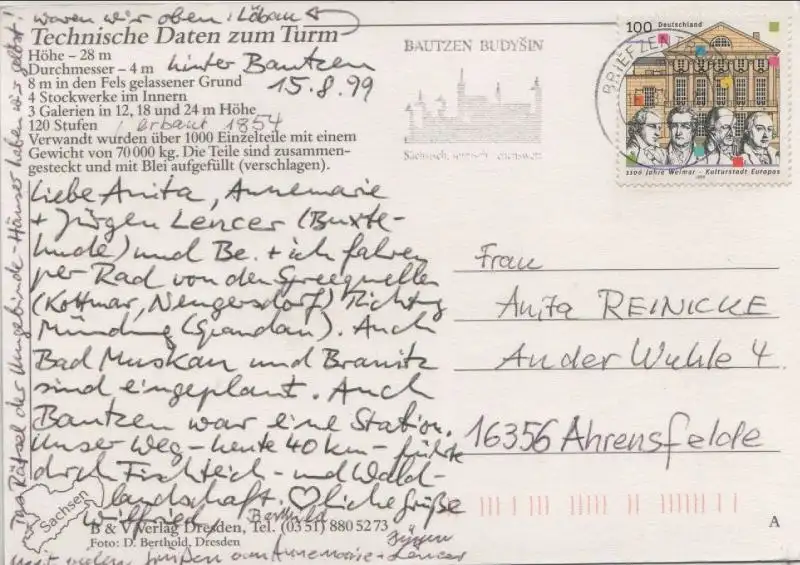 waren wir oben! Löbau
Technische Daten zum Turm
Höhe – 28 m
Durchmesser – 4 m hinter Bautzen
8 m in den Fels gelassener Grund 15.8.99
4 Stockwerke im Innern
3 Galerien in 12, 18 und 24 m Höhe
120 Stufen / erbaut 1854
Verwandt wurden über 1000 Einzelteile mit einem
Gewicht von 70 000 kg. Die Teile sind zusammen-
gesteckt und mit Blei aufgefüllt (verschlagen).
Liebe Anita, Annemarie
+ Jürgen Lencer (Buxte-
hude) und Be. + ich fahren
per Rad von den Spreequellen
(Kottmar, Neugersdorf) Richtung
Mündung (Spandau). Auch
Bad Muskau und Branitz
sind eingeplant. Auch
Bautzen war eine Station.
Unser Weg – heute 40 km – führte
drch Fischteich- und Wald-
landschaft. ♡liche Grüße
Wilfried Berthild
B & V Verlag Dresden, Tel. (03 51) 880 52 73
Foto: D. Berthold, Dresden
Mit vielen Grüßen von Annemarie + Jürgen Lencer
Das Rätsel der Umgebinde-Häuser haben wir gelöst!
Sachsen
BAUTZEN BUDYŠIN
BRIEFZENTR
100 Deutschland
1100 Jahre Weimar - Kulturstadt Europas
1999
Frau
Anita REINICKE
An der Wuhle 4
16356 Ahrensfelde
A